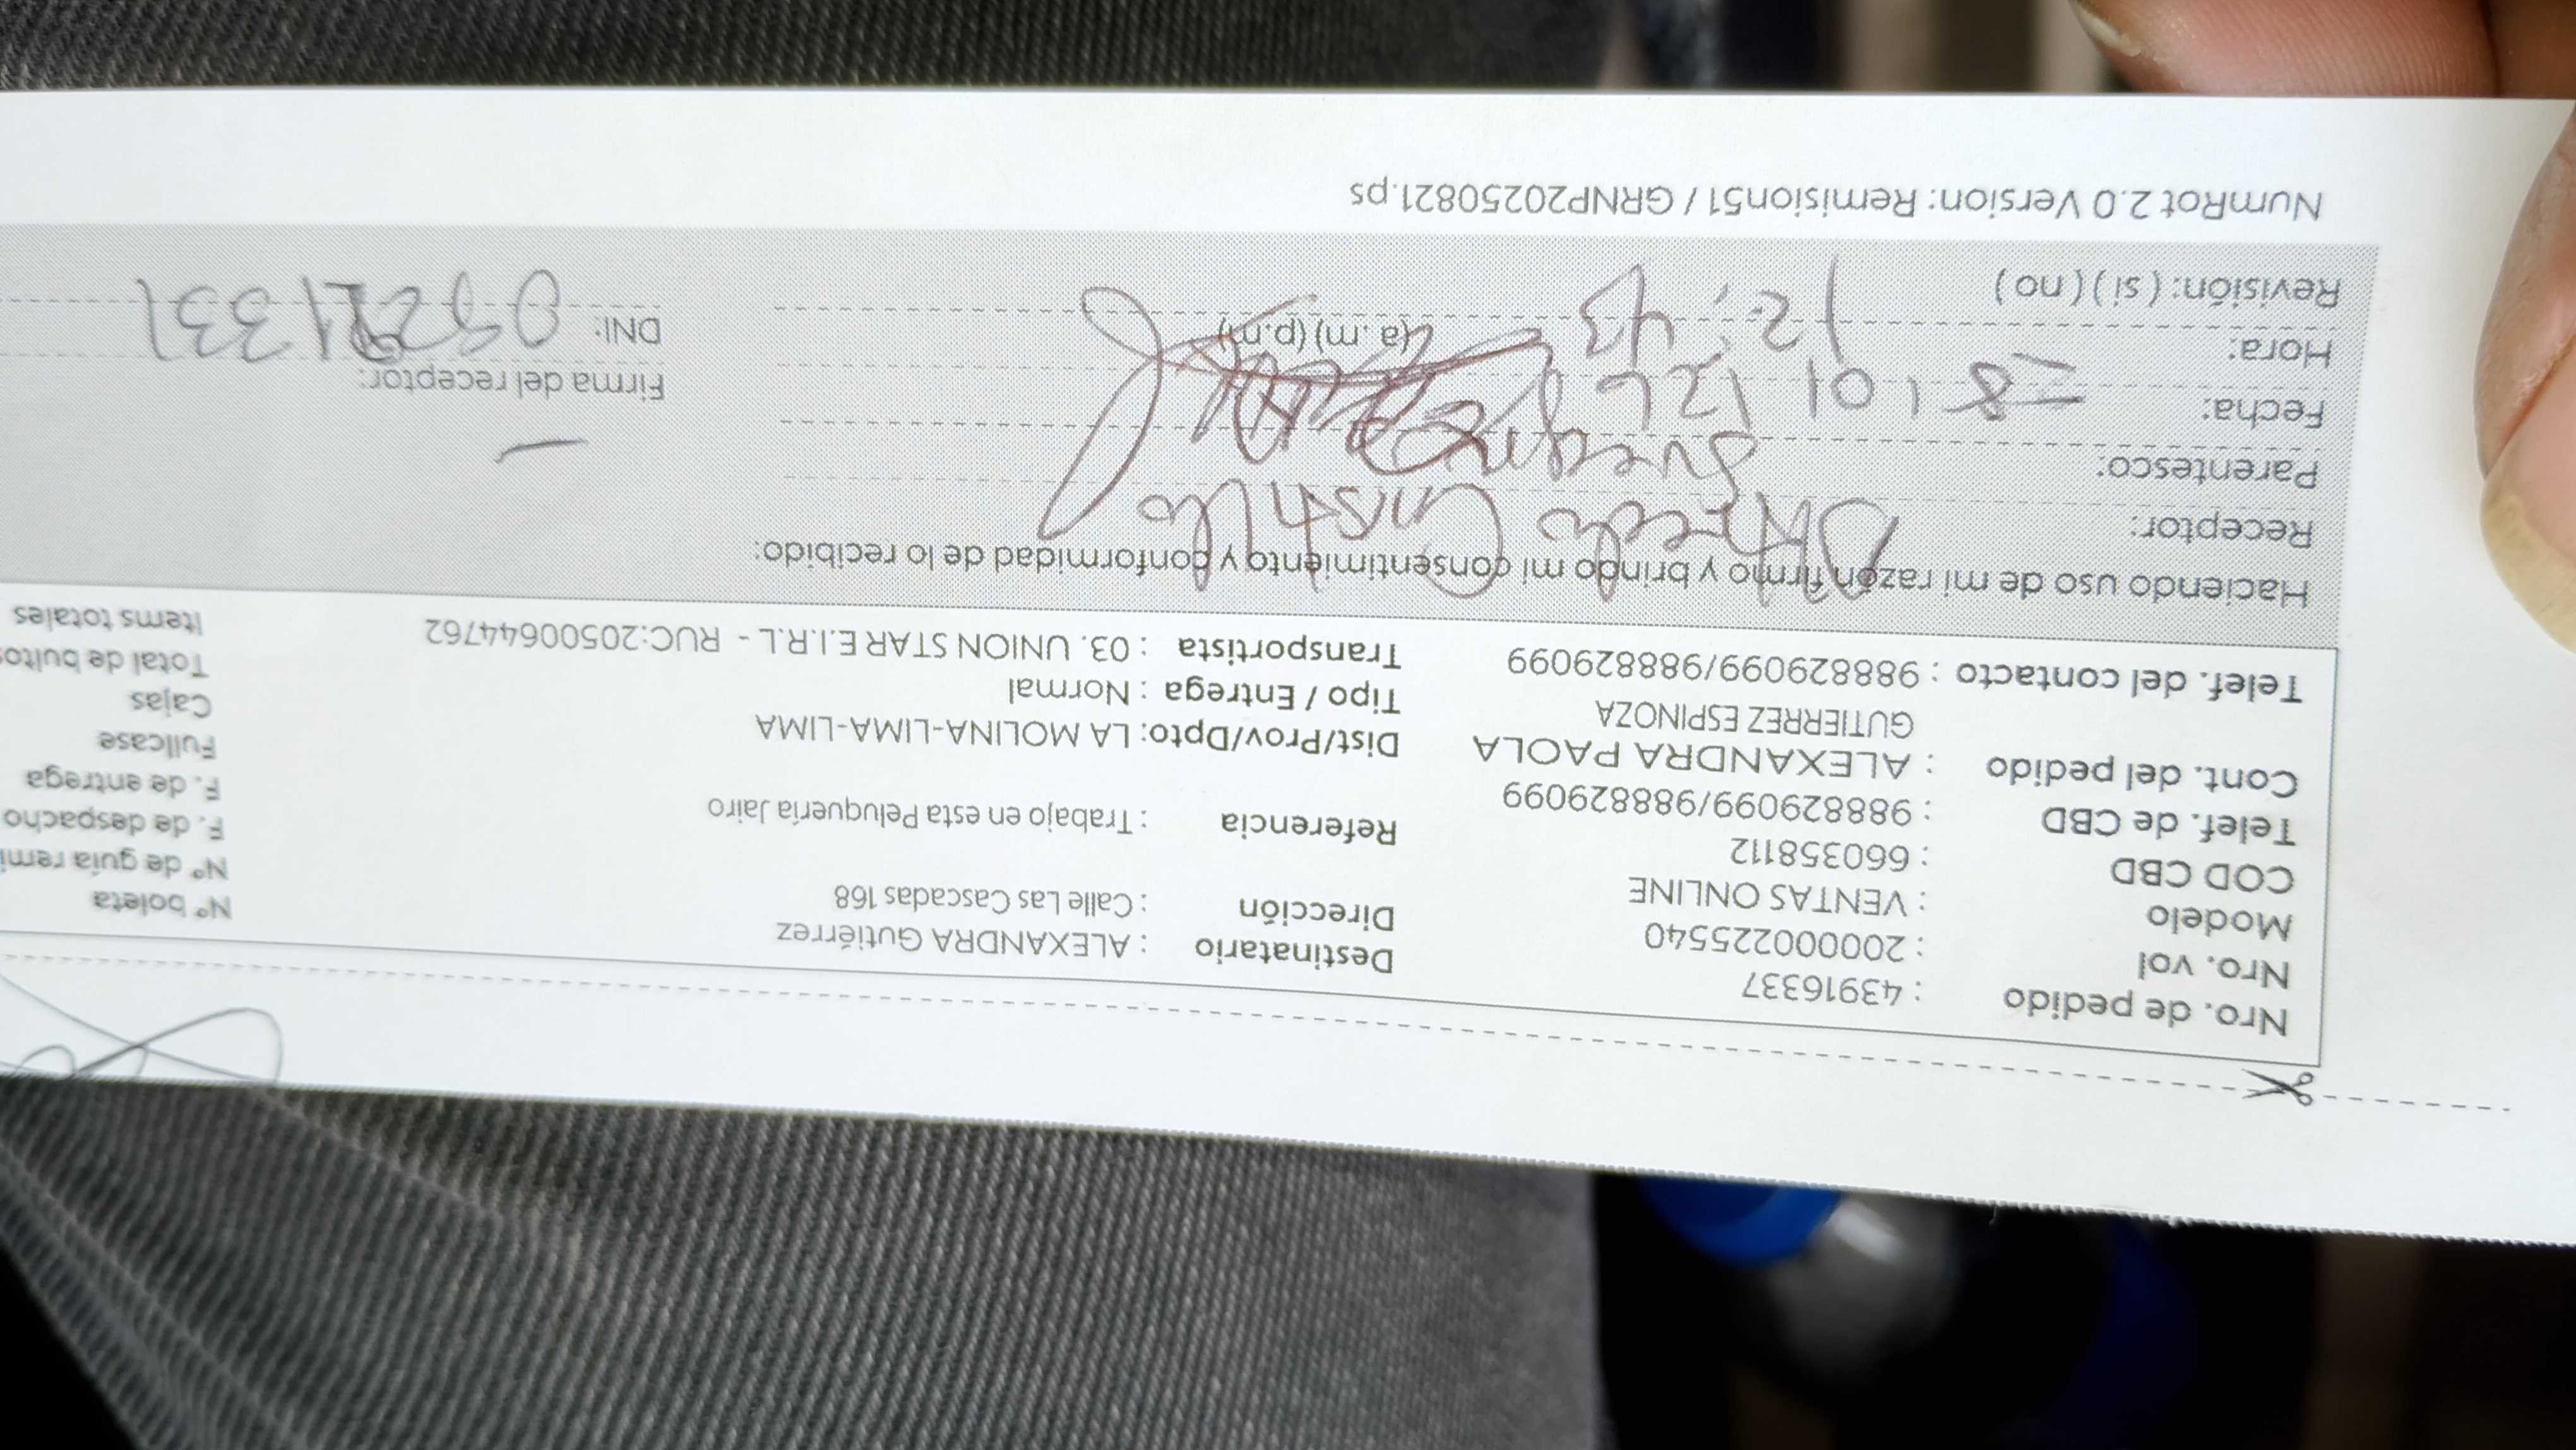 Nro. de pedido : 43916337
Nro. vol : 2000002255540
Modelo : VENTAS ONLINE
COD CBD : 660358112
Telef. de CBD : 988829099/988829099
Cont. del pedido : ALEXANDRA PAOLA
GUTIERREZ ESPINOZA
Telef. del contacto : 988829099/988829099
Destinatario : ALEXANDRA Gutiérrez
Dirección : Calle Las Cascadas 168
Referencia : Trabajo en esta Peluquería Jairo
Dist/Prov/Dpto: LA MOLINA-LIMA-LIMA
Tipo / Entrega : Normal
Transportista : 03. UNION STAR E.I.R.L - RUC:20500644762
Nº boleta
Nº de guía remi
F. de despacho
F. de entrega
Fullcase
Cajas
Total de bultos
Items totales
Haciendo uso de mi razón firmo y brindo mi consentimiento y conformidad de lo recibido:
Receptor: Castillo
Parentesco:
Fecha: 8 / 01 / 26
Hora: 12:43 (a. m) (p.m)
Revisión: ( si ) ( no )
Firma del receptor:
DNI:
NumRot 2.0 Version: Remision51 / GRNP20250821.ps